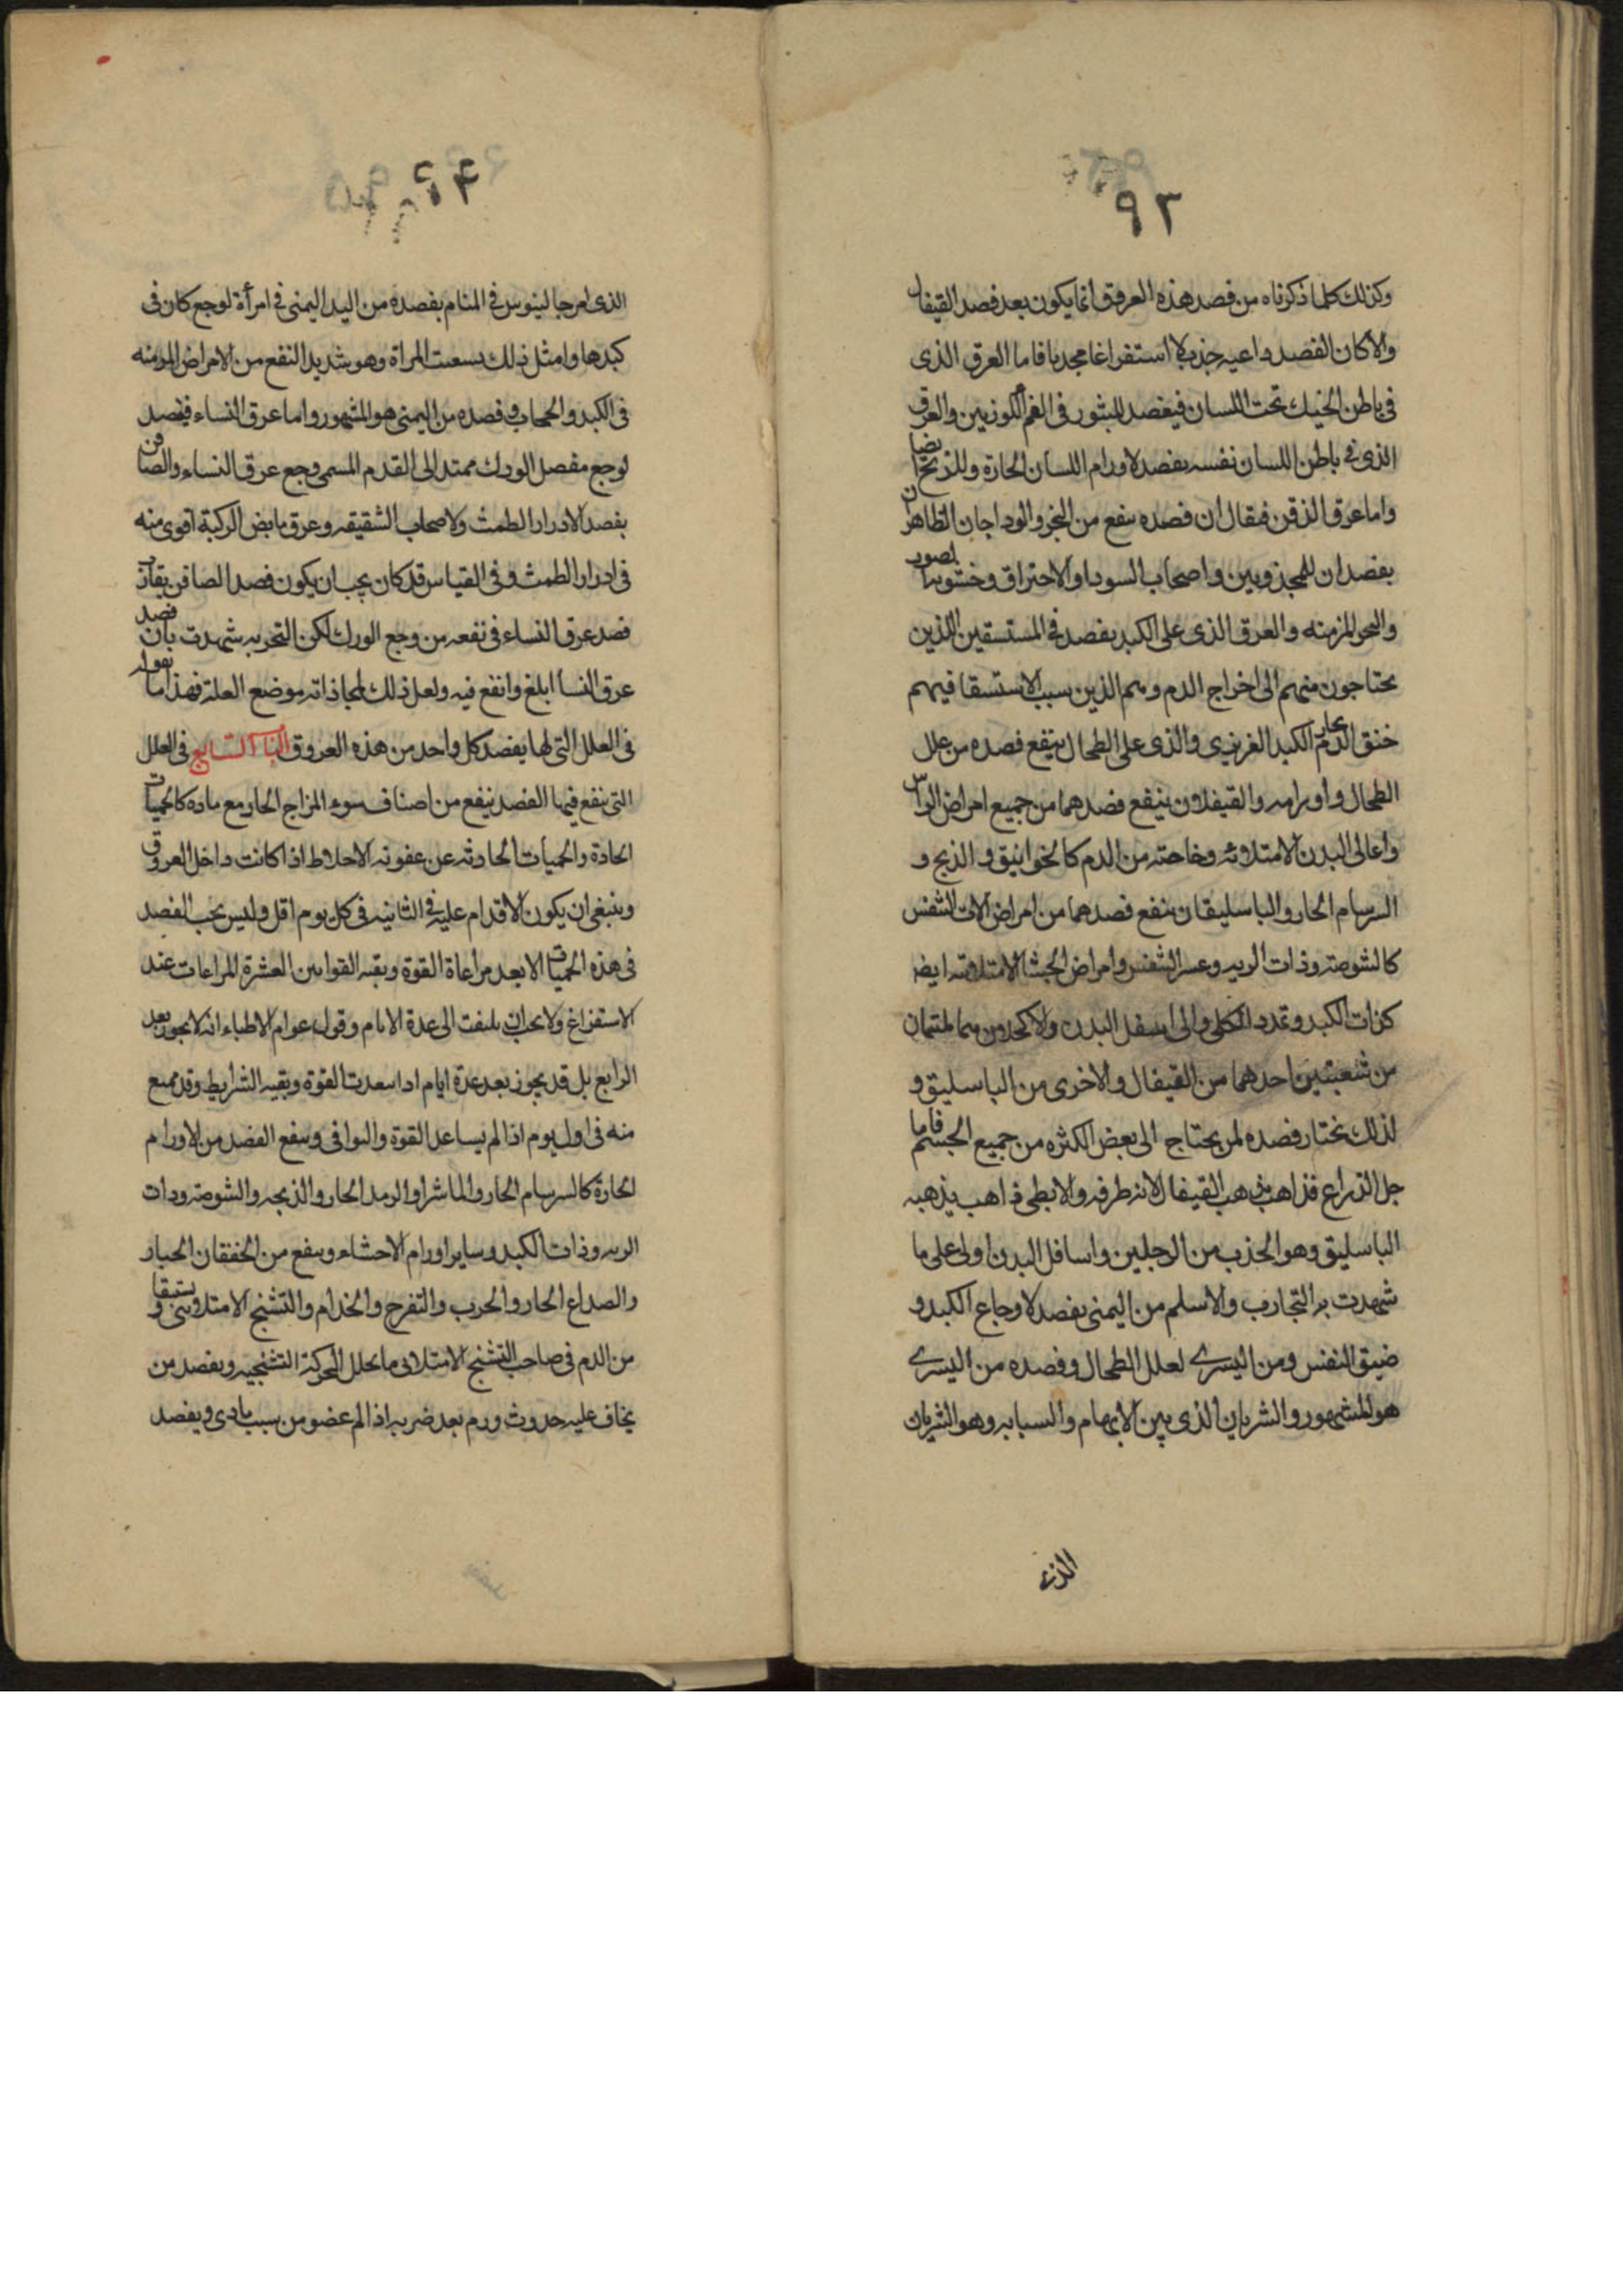 ٩٣
وكذلك كلما ذكرناه من فصد هذه العروق انما يكون بعد فصد القيفال
والا كان الفصد داعيه جذب لا استفراغا مجديا فاما العرق الذى
فى باطن الحنك تحت اللسان فيفصد للبثور فى الفم والعرق
الذى فى باطن اللسان نفسه يفصد لاورام اللسان الحارة وللذبحة ايضا
واما عرق الذقن فيقال ان فصده ينفع من البخر والوداجان الظاهران
يفصدان للمجذومين واصحاب السودا والاحتراق وخشونة الصوت
والبحو المزمنه والعرق الذى على الكبد يفصد فى المستسقين الذين
يحتاجون منهم الى اخراج الدم وهم الذين سبب الاستسقا فيهم
خنق الدم الكبد الغريزى والذى على الطحال ينفع فصده من علل
الطحال واورامه والقيفلان ينفع فصدهما من جميع امراض الراس
واعالى البدن الامتلائه وخاصته من الدم كالخوانيق والذبح و
السرسام الحار والباسليقان ينفع فصدهما من امراض الات التنفس
كالشوصه وذات الريه وعسر التنفس وامراض الحشا الامتلائه ايضا
كذات الكبد وتمدد الكلى والى اسفل البدن والاكحلان هما ملتئمان
من شعبتين احدهما من القيفال والاخرى من الباسليق و
لذلك نختار فصده لمن يحتاج الى بعض الكثره من جميع الجسم فاما
حبل الذراع فذاهب مذهب القيفال لانه طرفه والابطى ذاهب مذهبه
الباسليق وهو الجذب من الرجلين واسافل البدن اولى على ما
شهدت به التجارب والاسلم من اليمنى يفصد لاوجاع الكبد و
ضيق النفس ومن اليسرى لعلل الطحال وفصده من اليسرى
هو المشهور والشريان الذى بين الابهام والسبابه وهو الشريان
الذى
٩٤
الذى امر جالينوس فى المنام بفصده من اليد اليمنى فى امرأة لوجع كان فى
كبدها وامثل ذلك سعت المراة وهو شديد النفع من الامراض المزمنه
فى الكبد والحجاب وفصده من اليمنى هو المشهور واما عرق النساء فيفصد
لوجع مفصل الورك ممتد الى القدم المسمى وجع عرق النساء والصافن
يفصد لادرار الطمث ولاصحاب الشقيقه وعرق مابض الركبة اقوى منه
فى ادرار الطمث وفى القياس قد كان يجب ان يكون فصد الصافن يقارب
فصد عرق النساء فى نفعه من وجع الورك لكن التجربه شهدت بان فصد
عرق النسا ابلغ وانفع فيه ولعل ذلك لمحاذاته موضع العلة فهذا ما نقوله
فى العلل التى لها يفصد كل واحد من هذه العروق الباب السابع فى العلل
التى ينفع فيها الفصد ينفع من اصناف سوء المزاج الحار مع ماده كالحميات
الحادة والحميات الحادثه عن عفونه الاخلاط اذا كانت داخل العروق
وينبغى ان يكون الاقدام عليه فى الثانيه فى كل يوم اقل وليس يجب الفصد
فى هذه الحميات الا بعد مراعاة القوة وبقيه القوانين العشرة المراعات عند
الاستفراغ ولا يجب ان يلتفت الى عدة الايام وقول عوام الاطباء انه لا يجوز بعد
الرابع بل قد يجوز بعد عدة ايام اذا سعدت القوة وبقيه الشرايط وقد يمنع
منه فى اول يوم اذا لم يساعد القوة والبواقى وينفع الفصد من الاورام
الحارة كالسرسام الحار والماشرا والرمد الحار والذبحه والشوصه وذات
الريه وذات الكبد وساير اورام الاحشاء وينفع من الخفقان الحار
والصداع الحار والجرب والتقرح والجذام والتشنج الامتلائى ويستبقا
من الدم فى صاحب التشنج الامتلائى ما يحلل الحركة التشنجيه ويفصد من
يخاف عليه حدوث ورم بعد ضربه اذا الم عضو من سبب بادى ويفصد